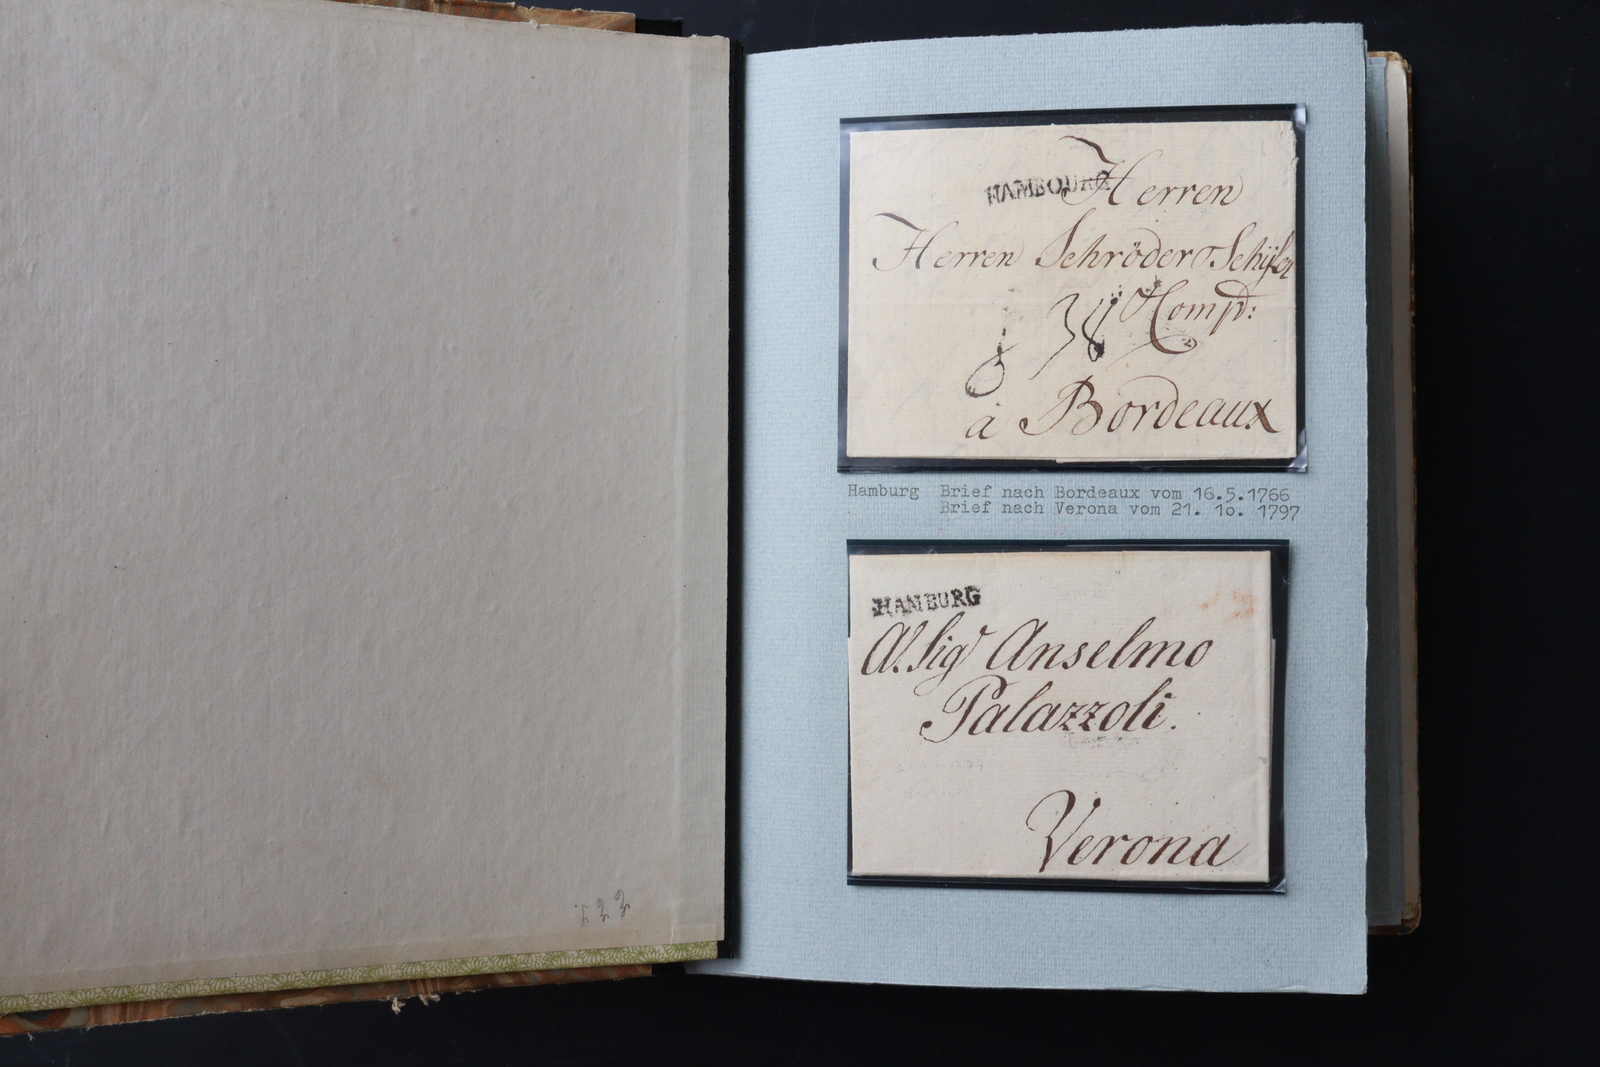 HAMBOURG
Herren
Herren Schröder & Schÿler
Comp:
à Bordeaux
Hamburg Brief nach Bordeaux vom 16.5.1766
Brief nach Verona vom 21. 1o. 1797
HAMBURG
Al Sigr Anselmo
Palazzoli.
Verona